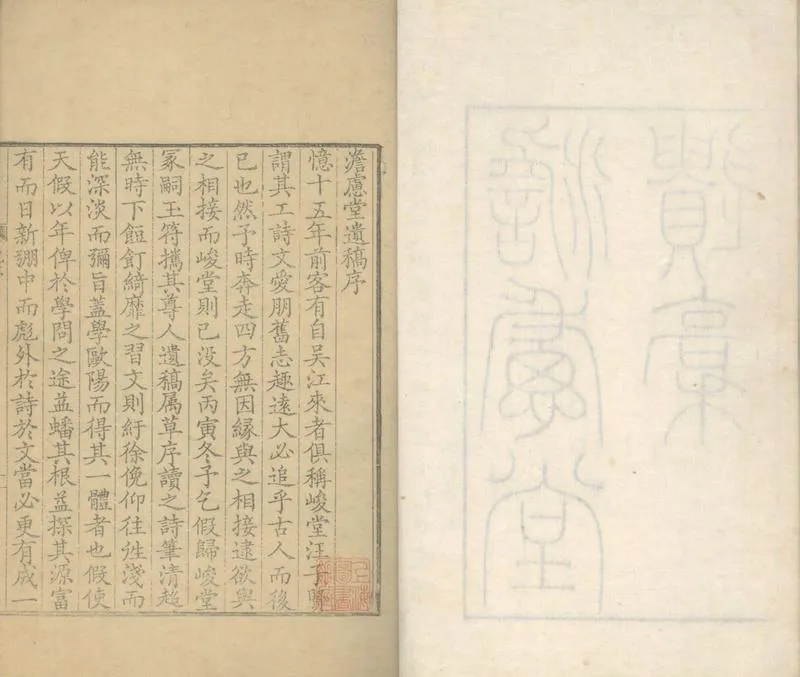 澹慮堂
遺稾
澹慮堂遺稿序
憶十五年前客有自吳江來者俱稱峻堂汪子賢
謂其工詩文愛朋舊志趣遠大必追乎古人而後
已也然予時奔走四方無因緣與之相接逮欲與
之相接而峻堂則已没矣丙寅冬予乞假歸峻堂
冢嗣王符攜其尊人遺稿属草序讀之詩筆清超
無時下餖飣綺靡之習文則紆徐俛仰往往淺而
能深淡而彌旨蓋學歐陽而得其一體者也假使
天假以年俾於學問之途益蟠其根益探其源富
有而日新弸中而彪外於詩於文當必更有成一
上海圖書館藏